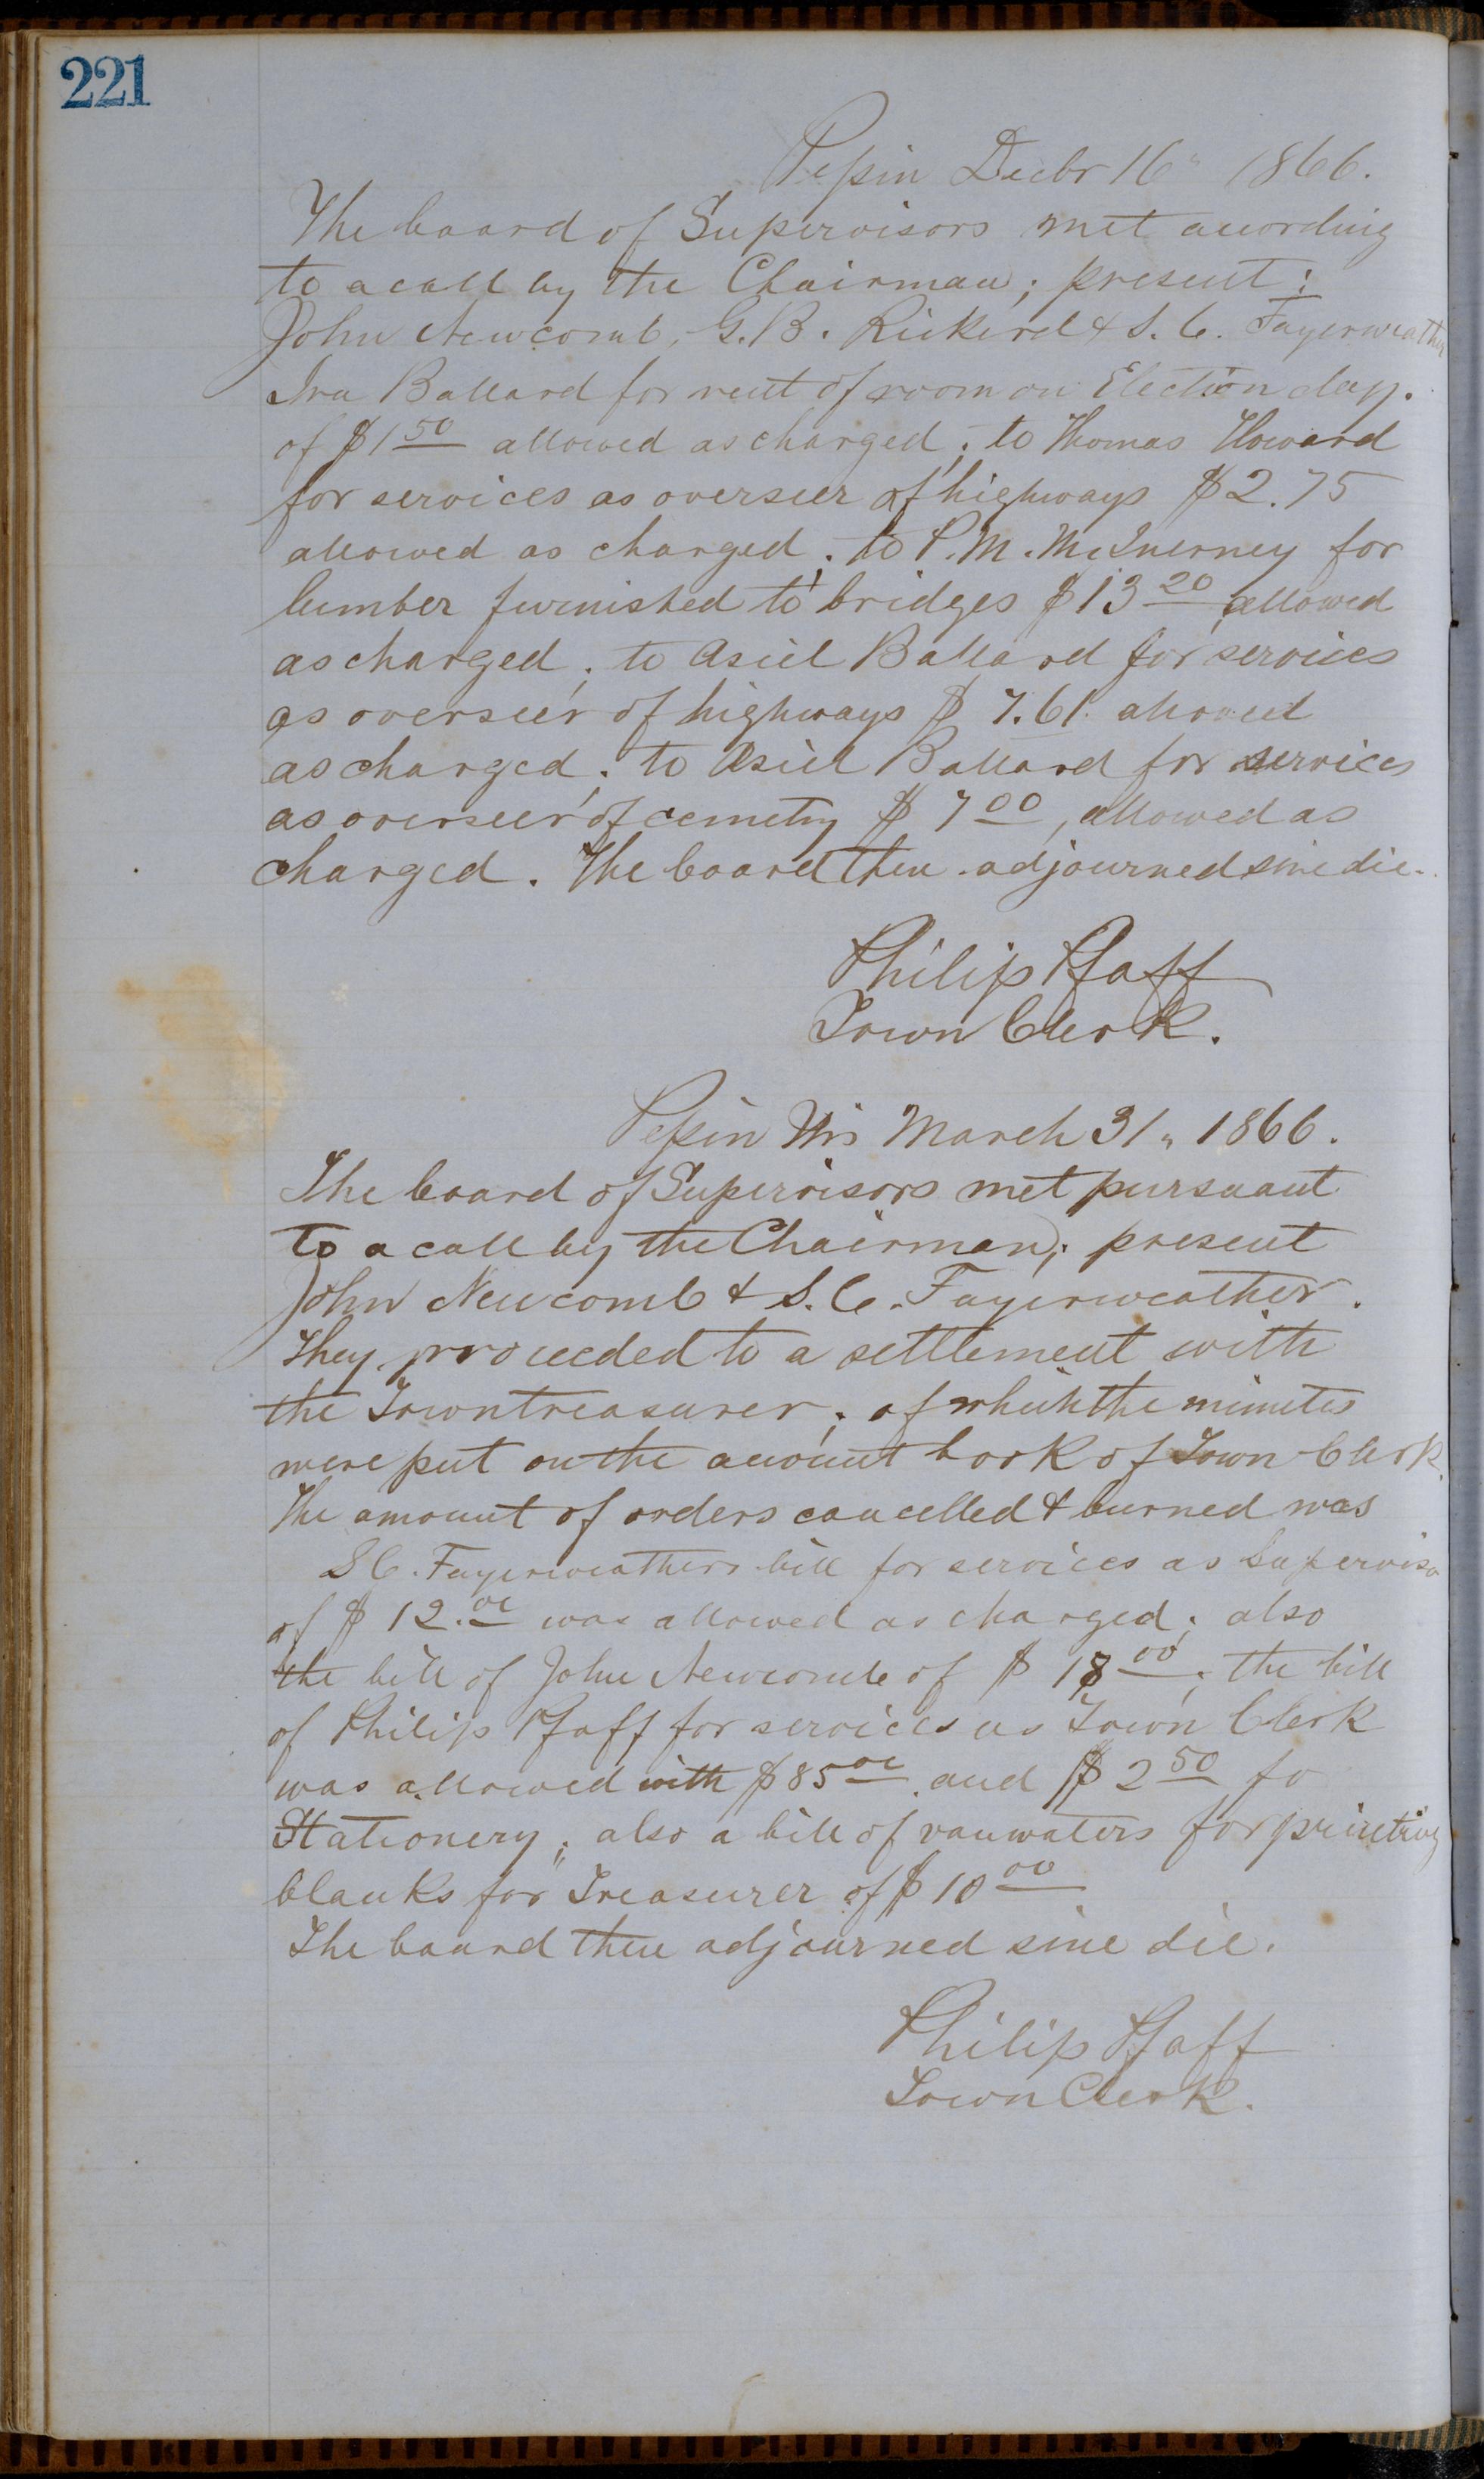 221
Pepin Decbr 16" 1866.
The board of Supervisors met acording
to a call by the Chairman; present:
John Newcomb, G.B. Rickerd & S. C. Fayerweather
Ira Ballard for rent of room on Election day.
of $1 50 allowed as charged; to Thomas Howard
for services as overseer of highways $2.75
allowed as charged; to P.M. McInerney for
lumber furnished to bridges $13 20 allowed
as charged; to Asiel Ballard for services
as overseer of highways $ 7.61. allowed
as charged; to Asiel Ballard for services
as overseer of cemetry $ 7 00, allowed as
charged. The board then adjourned sine die.
Philip Pfaff
Town Clerk.
Pepin Wis March 31" 1866.
The board of Supervisors met pursuant
to a call by the Chairman; present
John Newcomb & S. C. Fayerweather.
They proceeded to a settlement with
the Towntreasurer; of which the minutes
were put on the acount book of Town Clerk.
The amount of orders cancelled & burned was
S C. Fayerweathers bill for services as Superviso
of $ 12.oo was allowed as charged; also
the bill of John Newcomb of $ 18 00; the bill
of Philip Pfaff for services as Town Clerk
was allowed with $85 oo and $ 2 50 fo
Stationery; also a bill of vanwaters for printing
blanks for Treasurer of $ 10 00
The board then adjourned sine die.
Philip Pfaff
Town Clerk.